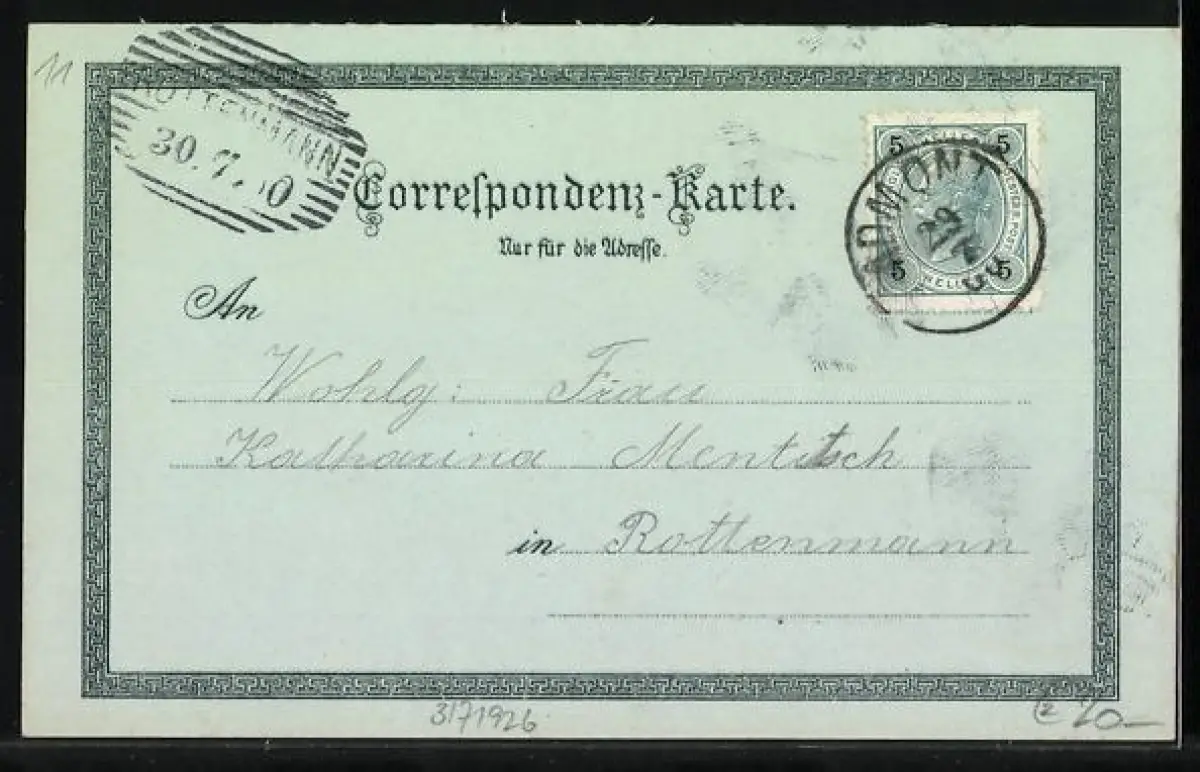 11
ROTTENMANN
30.7.00
Correspondenz-Karte.
Nur für die Adresse.
5 HELLER 5
5 HELLER 5
ADMONT
29
An
Wohlg: Frau
Katharina Mentitsch
in Rottenmann
3171926
20-